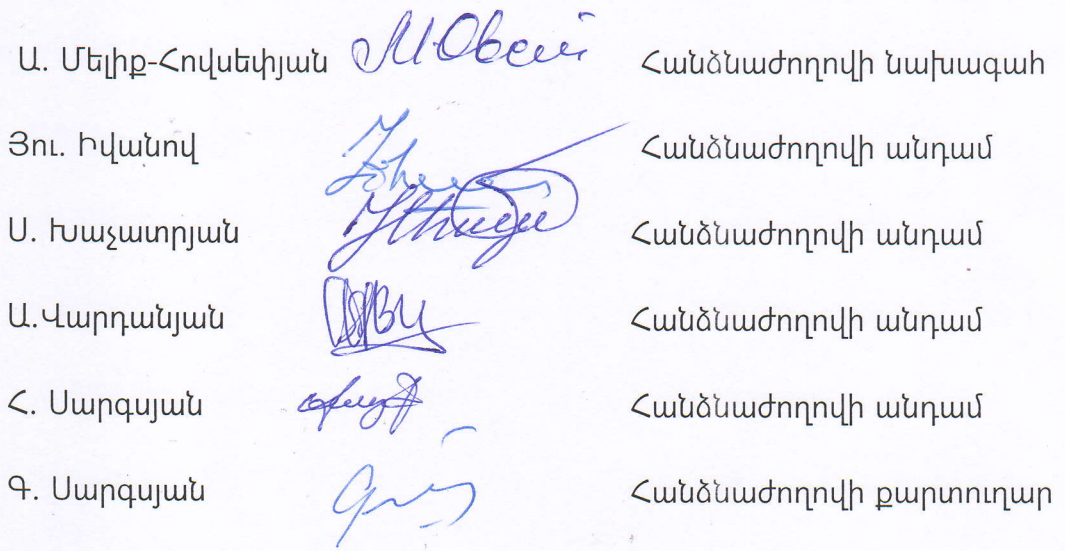 Ա. Մելիք-Հովսեփյան Հանձնաժողովի նախագահ
Յու. Իվանով Հանձնաժողովի անդամ
Ս. Խաչատրյան Հանձնաժողովի անդամ
Ա.Վարդանյան Հանձնաժողովի անդամ
Հ. Սարգսյան Հանձնաժողովի անդամ
Գ. Սարգսյան Հանձնաժողովի քարտուղար